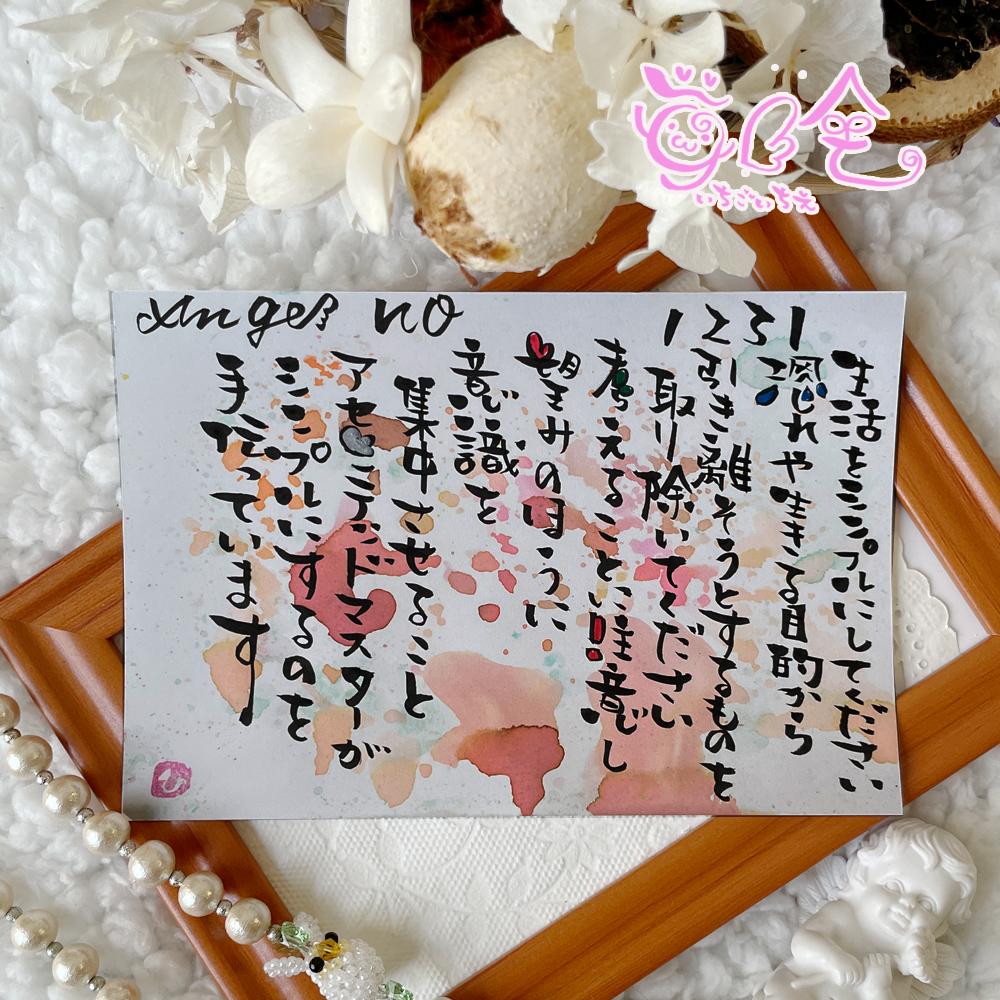 Angel no
1231
生活をシンプルにしてください
潤しれや生きる目的から
引き離そうとするものを
取り除いてください
考えることに注意し
望みのほうに
意識を
集中させること
アセンテッドマスターが
シンプルにするのを
手伝っています
いちごいちえ